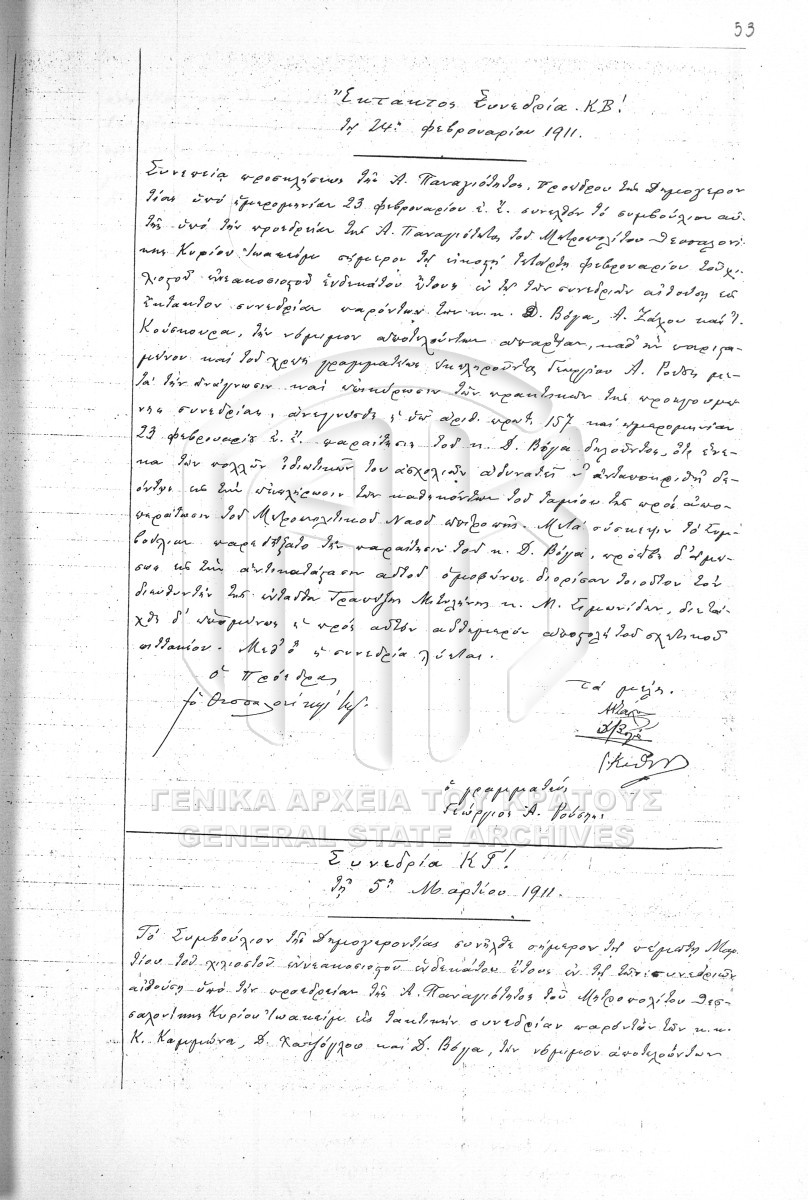 53
Ἔκτακτος Συνεδρία ΚΒ!
τῇ 24ῃ Φεβρουαρίου 1911.
Συνεπείᾳ προσκλήσεως τῆς Α. Παναγιότητος, προέδρου τῆς Δημογερον
τίας ὑπὸ ἡμερομηνίαν 23 Φεβρουαρίου ἐ. ἔ. συνελθὸν τὸ συμβούλιον αὐ-
τῆς ὑπὸ τὴν προεδρείαν τῆς Α. Παναγιότητος τοῦ Μητροπολίτου Θεσσαλονί
κης Κυρίου Ἰωακεὶμ σήμερον τῇ εἰκοστῇ τετάρτῃ Φεβρουαρίου τοῦ χι-
λιοστοῦ ἐννεακοσιοστοῦ ἑνδεκάτου ἔτους ἐν τῇ τῶν συνεδριῶν αἰθούσῃ εἰς
ἔκτακτον συνεδρίαν παρόντων τῶν κ.κ. Δ. Βόγα, Α. Ζάχου καὶ Ἰ.
Κούσκουρα, τὴν νόμιμον ἀποτελούντων ἀπαρτίαν, καθ' ἣν παριστα-
μένου καὶ τοῦ χρέη γραμματέως ἐκπληροῦντος Γεωργίου Α. Ρούση με-
τὰ τὴν ἀνάγνωσιν καὶ ἐπικύρωσιν τῶν πρακτικῶν τῆς προηγουμέ
νης συνεδρίας, ἀνεγνώσθη ἡ ὑπ' ἀριθ. πρωτ. 157 καὶ ἡμερομηνίαν
23 Φεβρουαρίου ἐ. ἔ. παραίτησις τοῦ κ. Δ. Βόγα δηλοῦντος, ὅτι ἕνε-
κα τῶν πολλῶν ἰδιωτικῶν του ἀσχολιῶν ἀδυνατεῖ ν' ἀνταποκριθῇ δε-
όντως εἰς τὴν ἐκπλήρωσιν τῶν καθηκόντων τοῦ ταμίου τῆς πρὸς ἀπο-
περάτωσιν τοῦ Μητροπολιτικοῦ Ναοῦ ἐπιτροπῆς. Μετὰ σύσκεψιν τὸ Συμ-
βούλιον παρεδέξατο τὴν παραίτησιν τοῦ κ. Δ. Βόγα, προέβη δ' ἀμέ-
σως εἰς τὴν ἀντικατάστασιν αὐτοῦ ὁμοφώνως διορίσαν τοιοῦτον τὸν
διευθυντὴν τῆς ἐνταῦθα Τραπέζης Μυτιλήνης κ. Μ. Σιμωνίδην, διετά-
χθη δ' ἑπομένως ἡ πρὸς αὐτὸν αὐθημερὸν ἀποστολὴ τοῦ σχετικοῦ
πιττακίου. Μεθ' ὃ ἡ συνεδρία λύεται.
ὁ Πρόεδρος
τὰ μέλη.
ὁ Θεσσαλονίκης
ὁ γραμματεύς
Γεώργιος Α. Ρούσης
ΓΕΝΙΚΑ ΑΡΧΕΙΑ ΤΟΥ ΚΡΑΤΟΥΣ
GENERAL STATE ARCHIVES
Συνεδρία ΚΓ!
τῇ 5ῃ Μαρτίου 1911.
Τὸ Συμβούλιον τῆς Δημογεροντίας συνῆλθε σήμερον τῇ πέμπτῃ Μαρ
τίου τοῦ χιλιοστοῦ ἐννεακοσιοστοῦ ἑνδεκάτου ἔτους ἐν τῇ τῶν συνεδριῶν
αἰθούσῃ ὑπὸ τὴν προεδρείαν τῆς Α. Παναγιότητος τοῦ Μητροπολίτου Θεσ-
σαλονίκης Κυρίου Ἰωακεὶμ εἰς τακτικὴν συνεδρίαν παρόντων τῶν κ.κ.
Κ. Καμμώνα, Δ. Χατζόγλου καὶ Δ. Βόγα, τὴν νόμιμον ἀποτελούντων